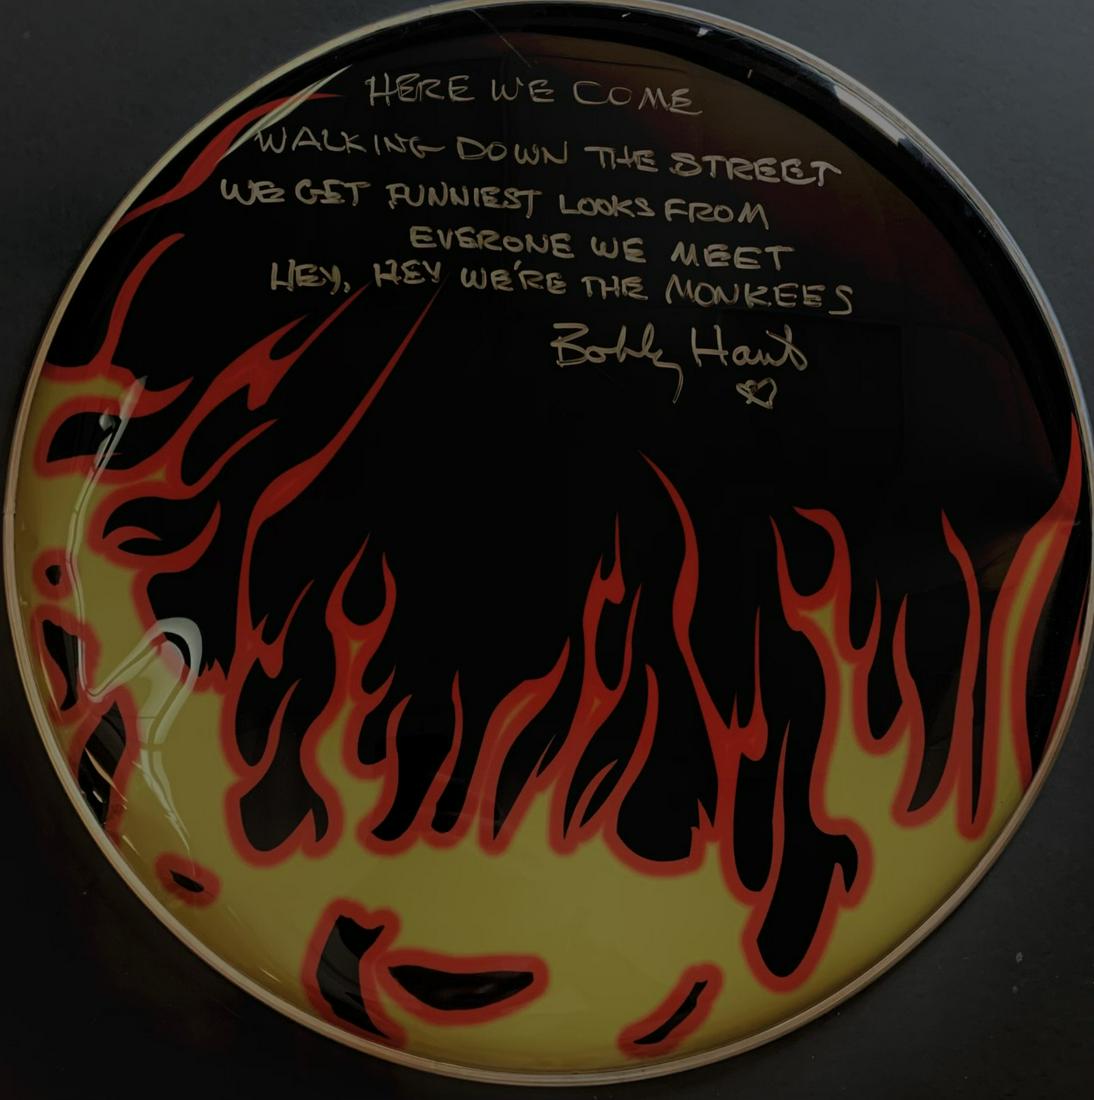 HERE WE COME
WALKING DOWN THE STREET
WE GET FUNNIEST LOOKS FROM
EVERONE WE MEET
HEY, HEY WE'RE THE MONKEES
Bobby Hart